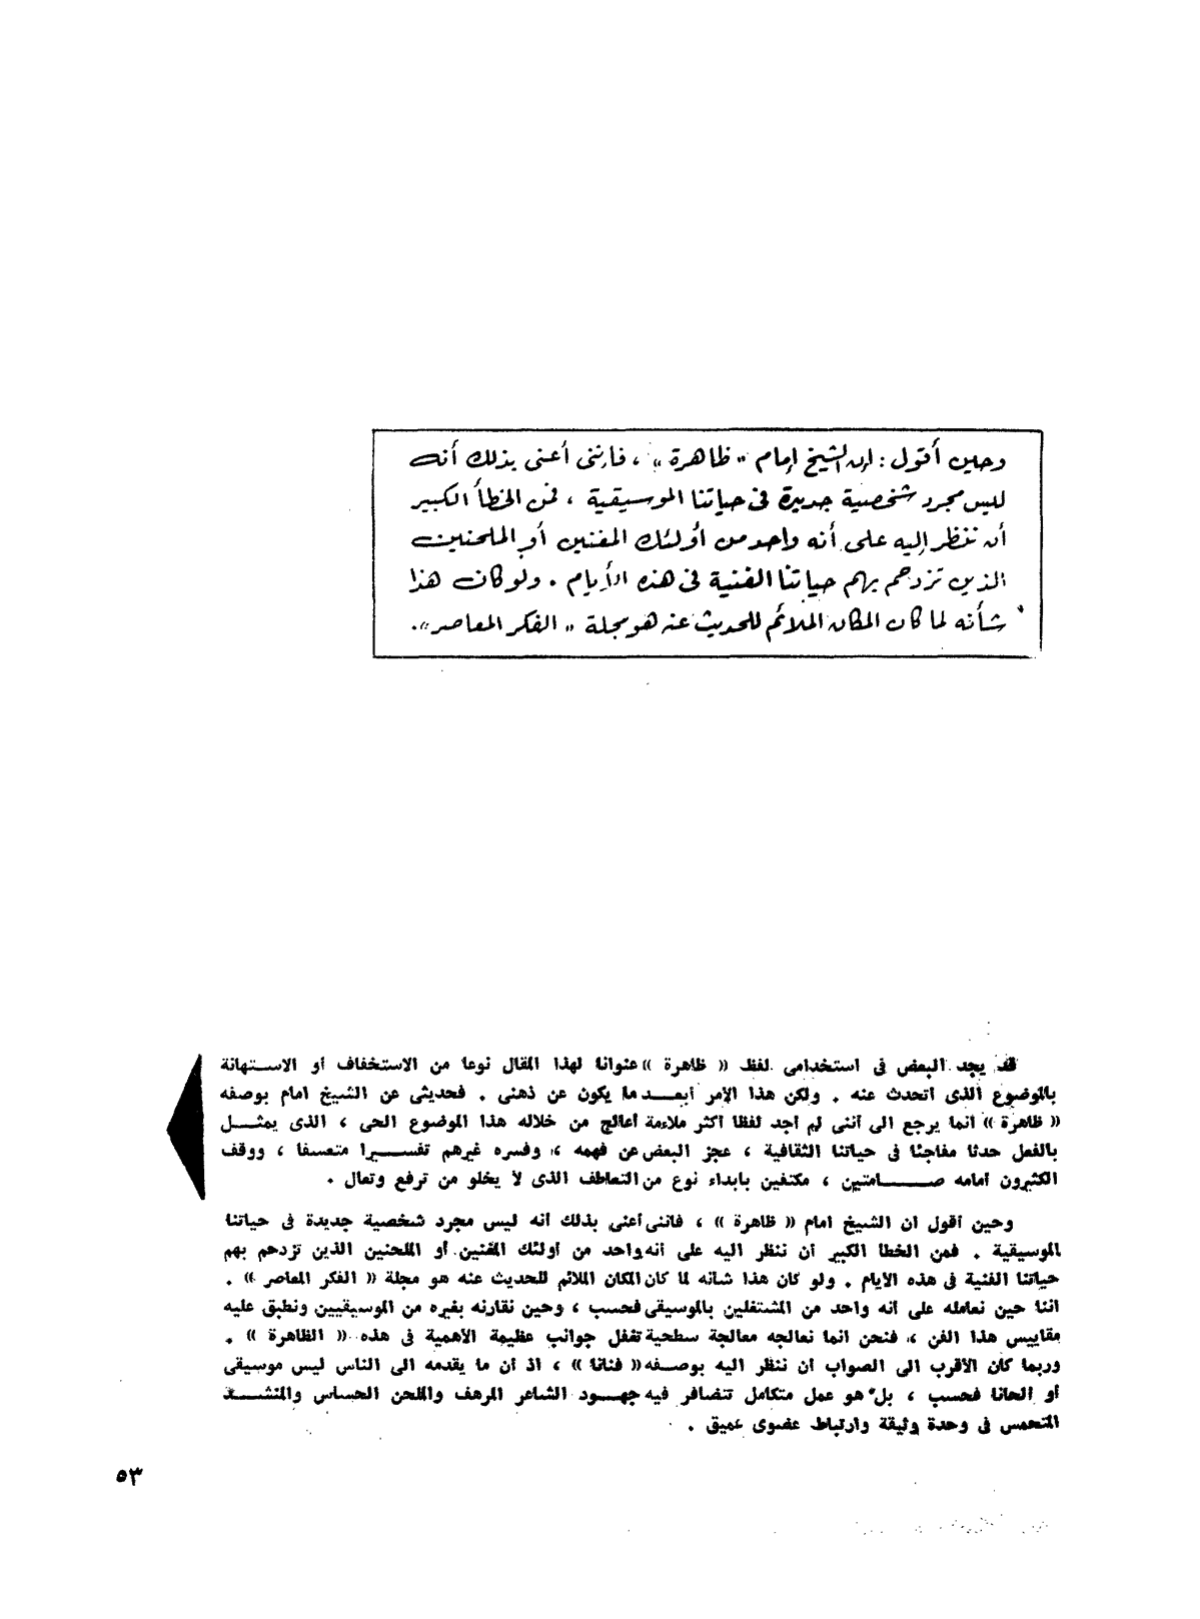 وحين أقول : إن الشيخ إمام « ظاهرة » ، فإننى أعنى بذلك أنه
ليس مجرد شخصية جديدة فى حياتنا الموسيقية ، فمن الخطأ الكبير
أن ننظر إليه على أنه واحد من أولئك المغنين أو الملحنين
الذين تزدحم بهم حياتنا الفنية فى هذه الأيام . ولو كان هذا
شأنه لما كان المكان الملائم للحديث عنه هو مجلة « الفكر المعاصر » .
قد يجد البعض فى استخدامى لفظ « ظاهرة » عنوانا لهذا المقال نوعا من الاستخفاف أو الاستهانة
بالموضوع الذى اتحدث عنه . ولكن هذا الأمر أبعد ما يكون عن ذهنى . فحديثى عن الشيخ امام بوصفه
« ظاهرة » انما يرجع الى أننى لم أجد لفظا أكثر ملاءمة أعالج من خلاله هذا الموضوع الحى ، الذى يمثل
بالفعل حدثا مفاجئا فى حياتنا الثقافية ، عجز البعض عن فهمه ، وفسره غيرهم تفسيرا متعسفا ، ووقف
الكثيرون أمامه صامتين ، مكتفين بابداء نوع من التعاطف الذى لا يخلو من ترفع وتعال .
وحين أقول ان الشيخ امام « ظاهرة » ، فاننى أعنى بذلك أنه ليس مجرد شخصية جديدة فى حياتنا
الموسيقية . فمن الخطأ الكبير أن ننظر اليه على أنه واحد من أولئك المغنين أو الملحنين الذين تزدحم بهم
حياتنا الفنية فى هذه الأيام . ولو كان هذا شأنه لما كان المكان الملائم للحديث عنه هو مجلة « الفكر المعاصر » .
اننا حين نعامله على أنه واحد من المشتغلين بالموسيقى فحسب ، وحين نقارنه بغيره من الموسيقيين ونطبق عليه
مقاييس هذا الفن ، فنحن انما نعالجه معالجة سطحية تغفل جوانب عظيمة الأهمية فى هذه « الظاهرة » .
وربما كان الأقرب الى الصواب أن ننظر اليه بوصفه « فنانا » ، اذ أن ما يقدمه الى الناس ليس موسيقى
أو ألحانا فحسب ، بل هو عمل متكامل تتضافر فيه جهود الشاعر المرهف والملحن الحساس والمنشد
المتحمس فى وحدة وثيقة وارتباط عضوى عميق .
٥٣